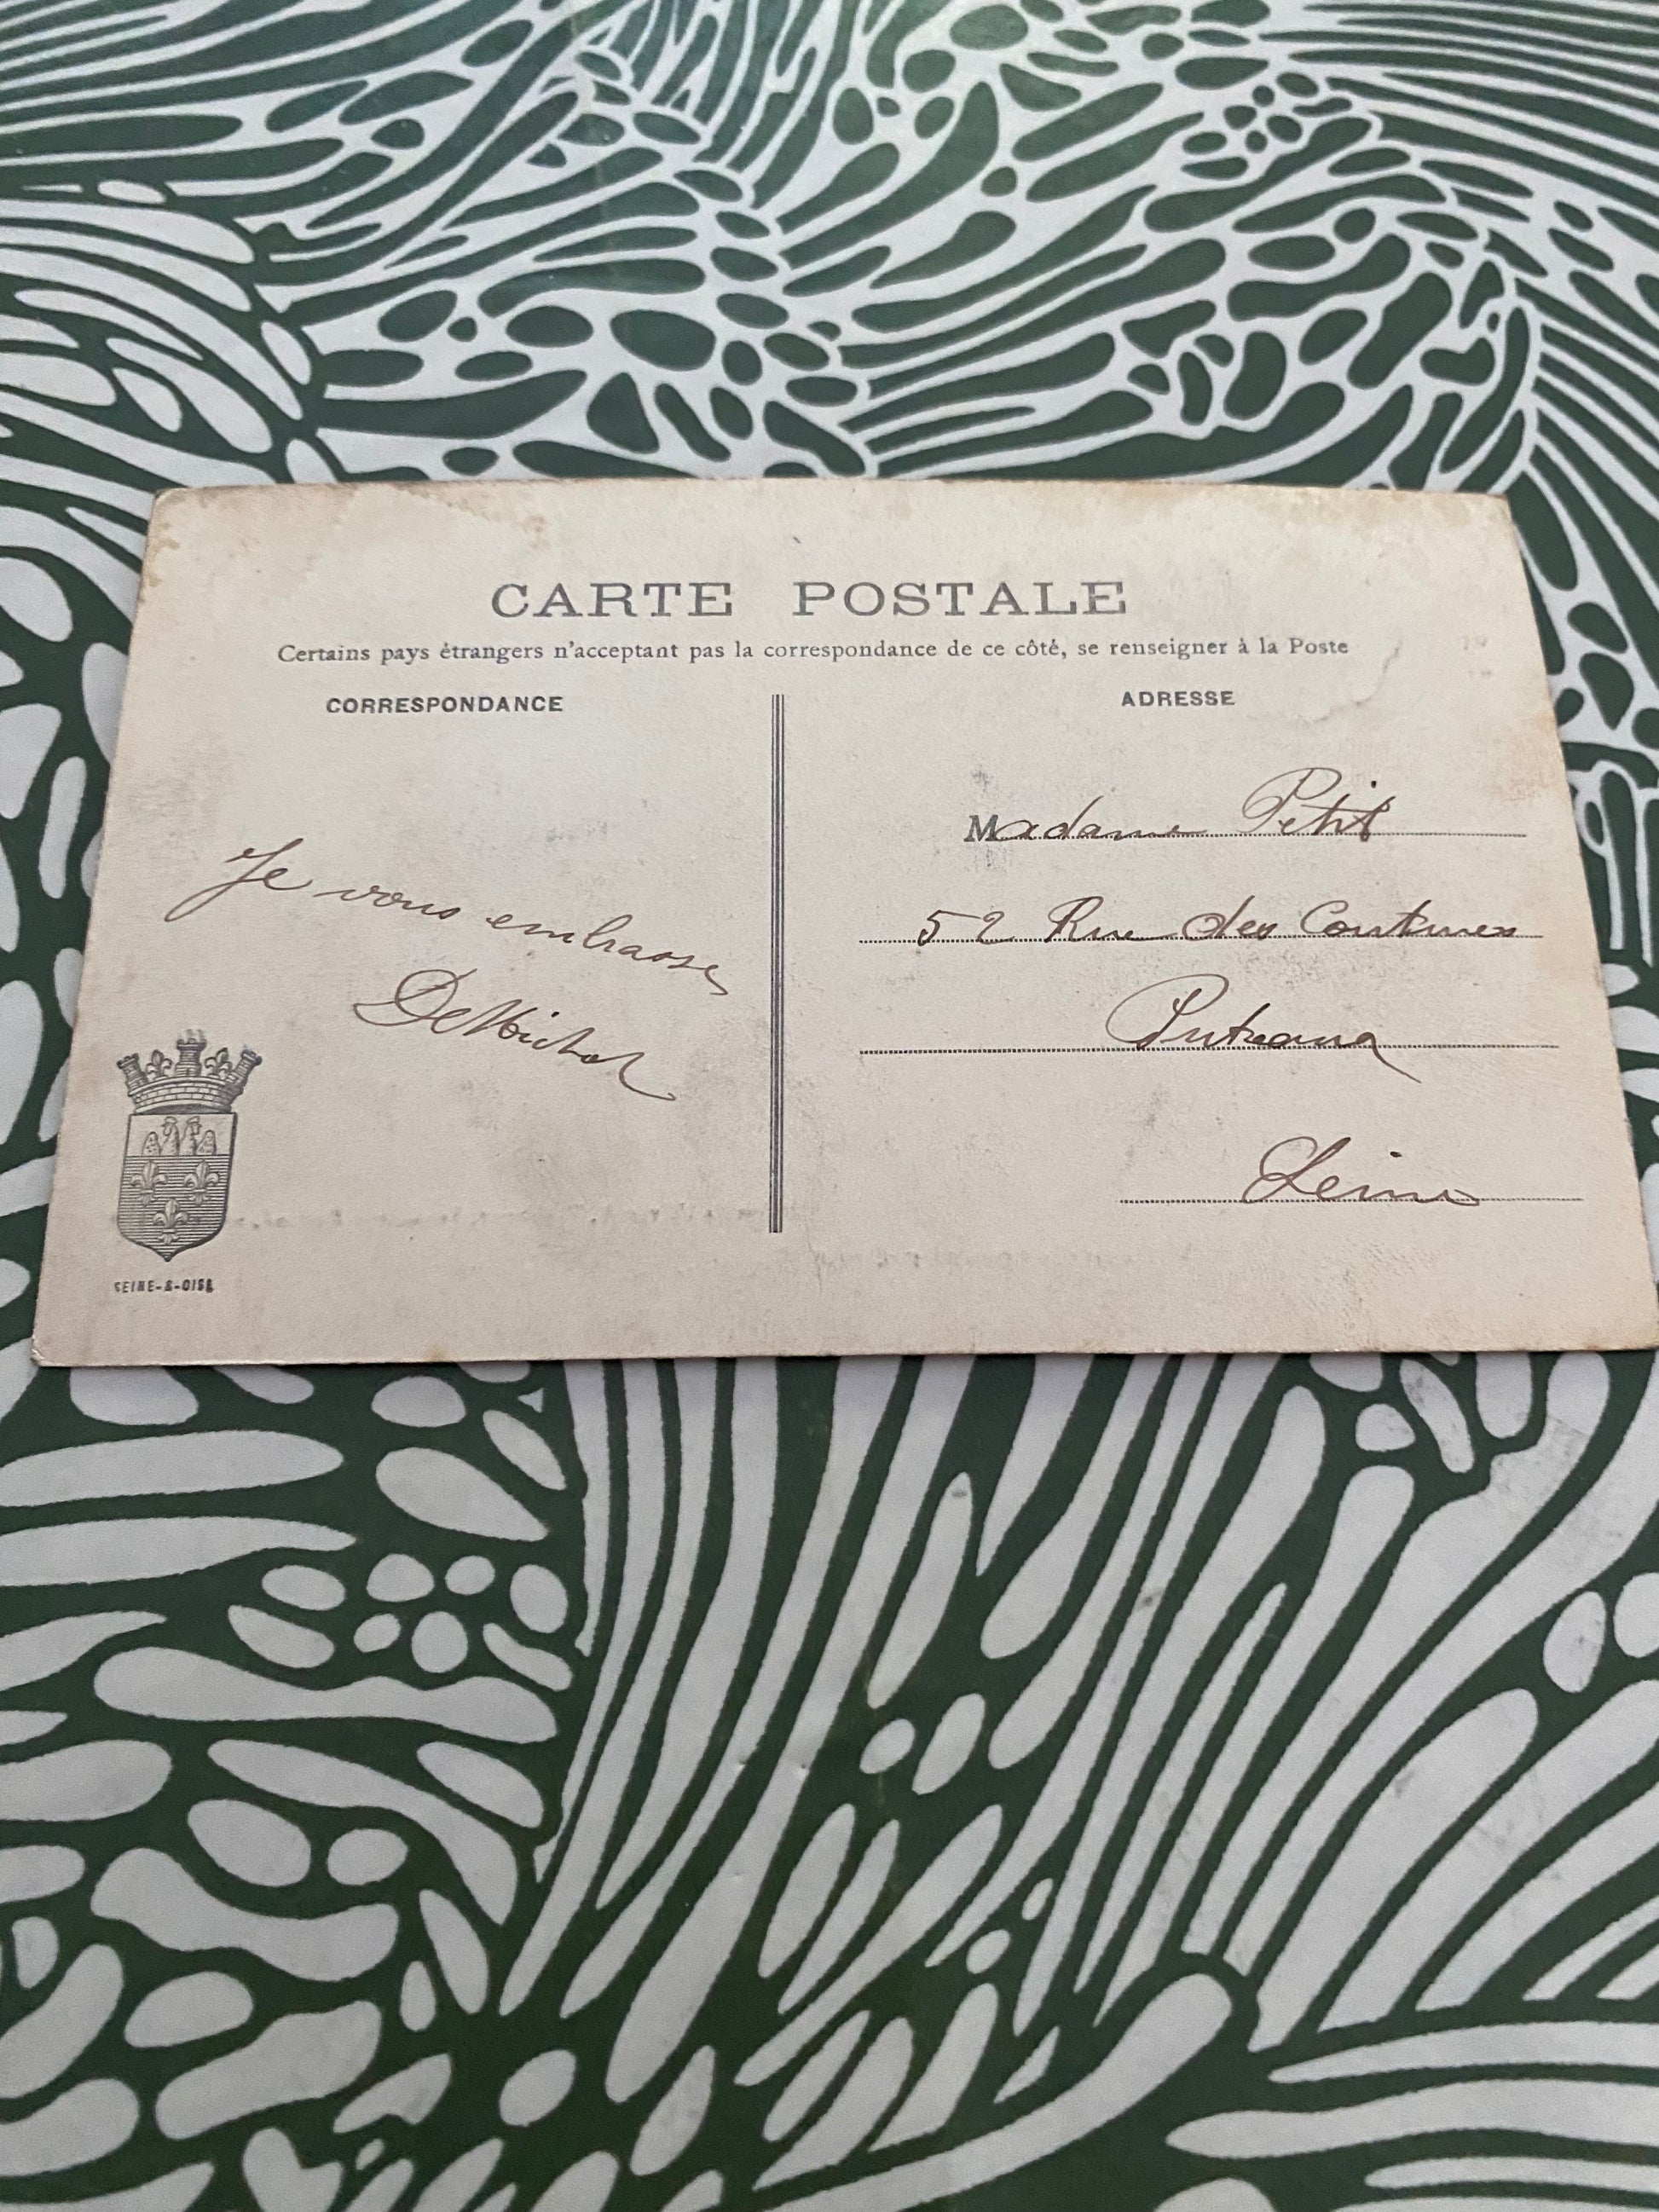 CARTE POSTALE
Certains pays étrangers n'acceptant pas la correspondance de ce côté, se renseigner à la Poste
CORRESPONDANCE
ADRESSE
Je vous embrasse
Madame Petit
52 Rue des
Puteaux
Seine
SEINE-&-OISE